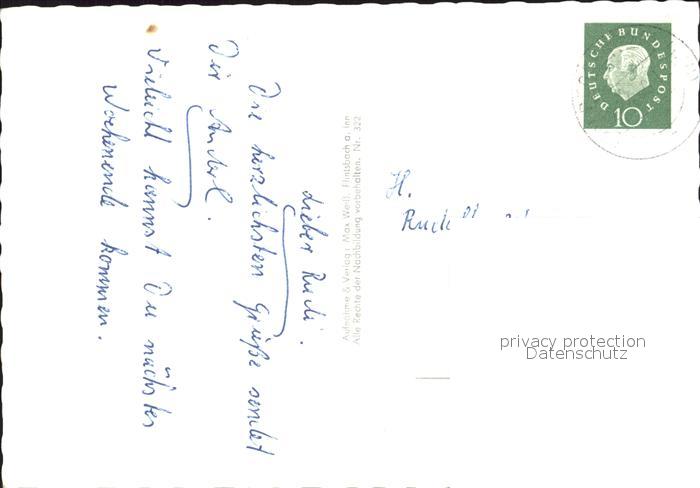 Lieber Rudi.
Die herzlichsten Grüße sendet
Dir Anderl.
Vieleicht kannst Du nächster
Wochenende kommen.
Aufnahme & Verlag: Max Weiß, Flintsbach a. Inn
Alle Rechte der Nachbildung vorbehalten. Nr. 322
H.
DEUTSCHE BUNDESPOST
10
privacy protection
Datenschutz